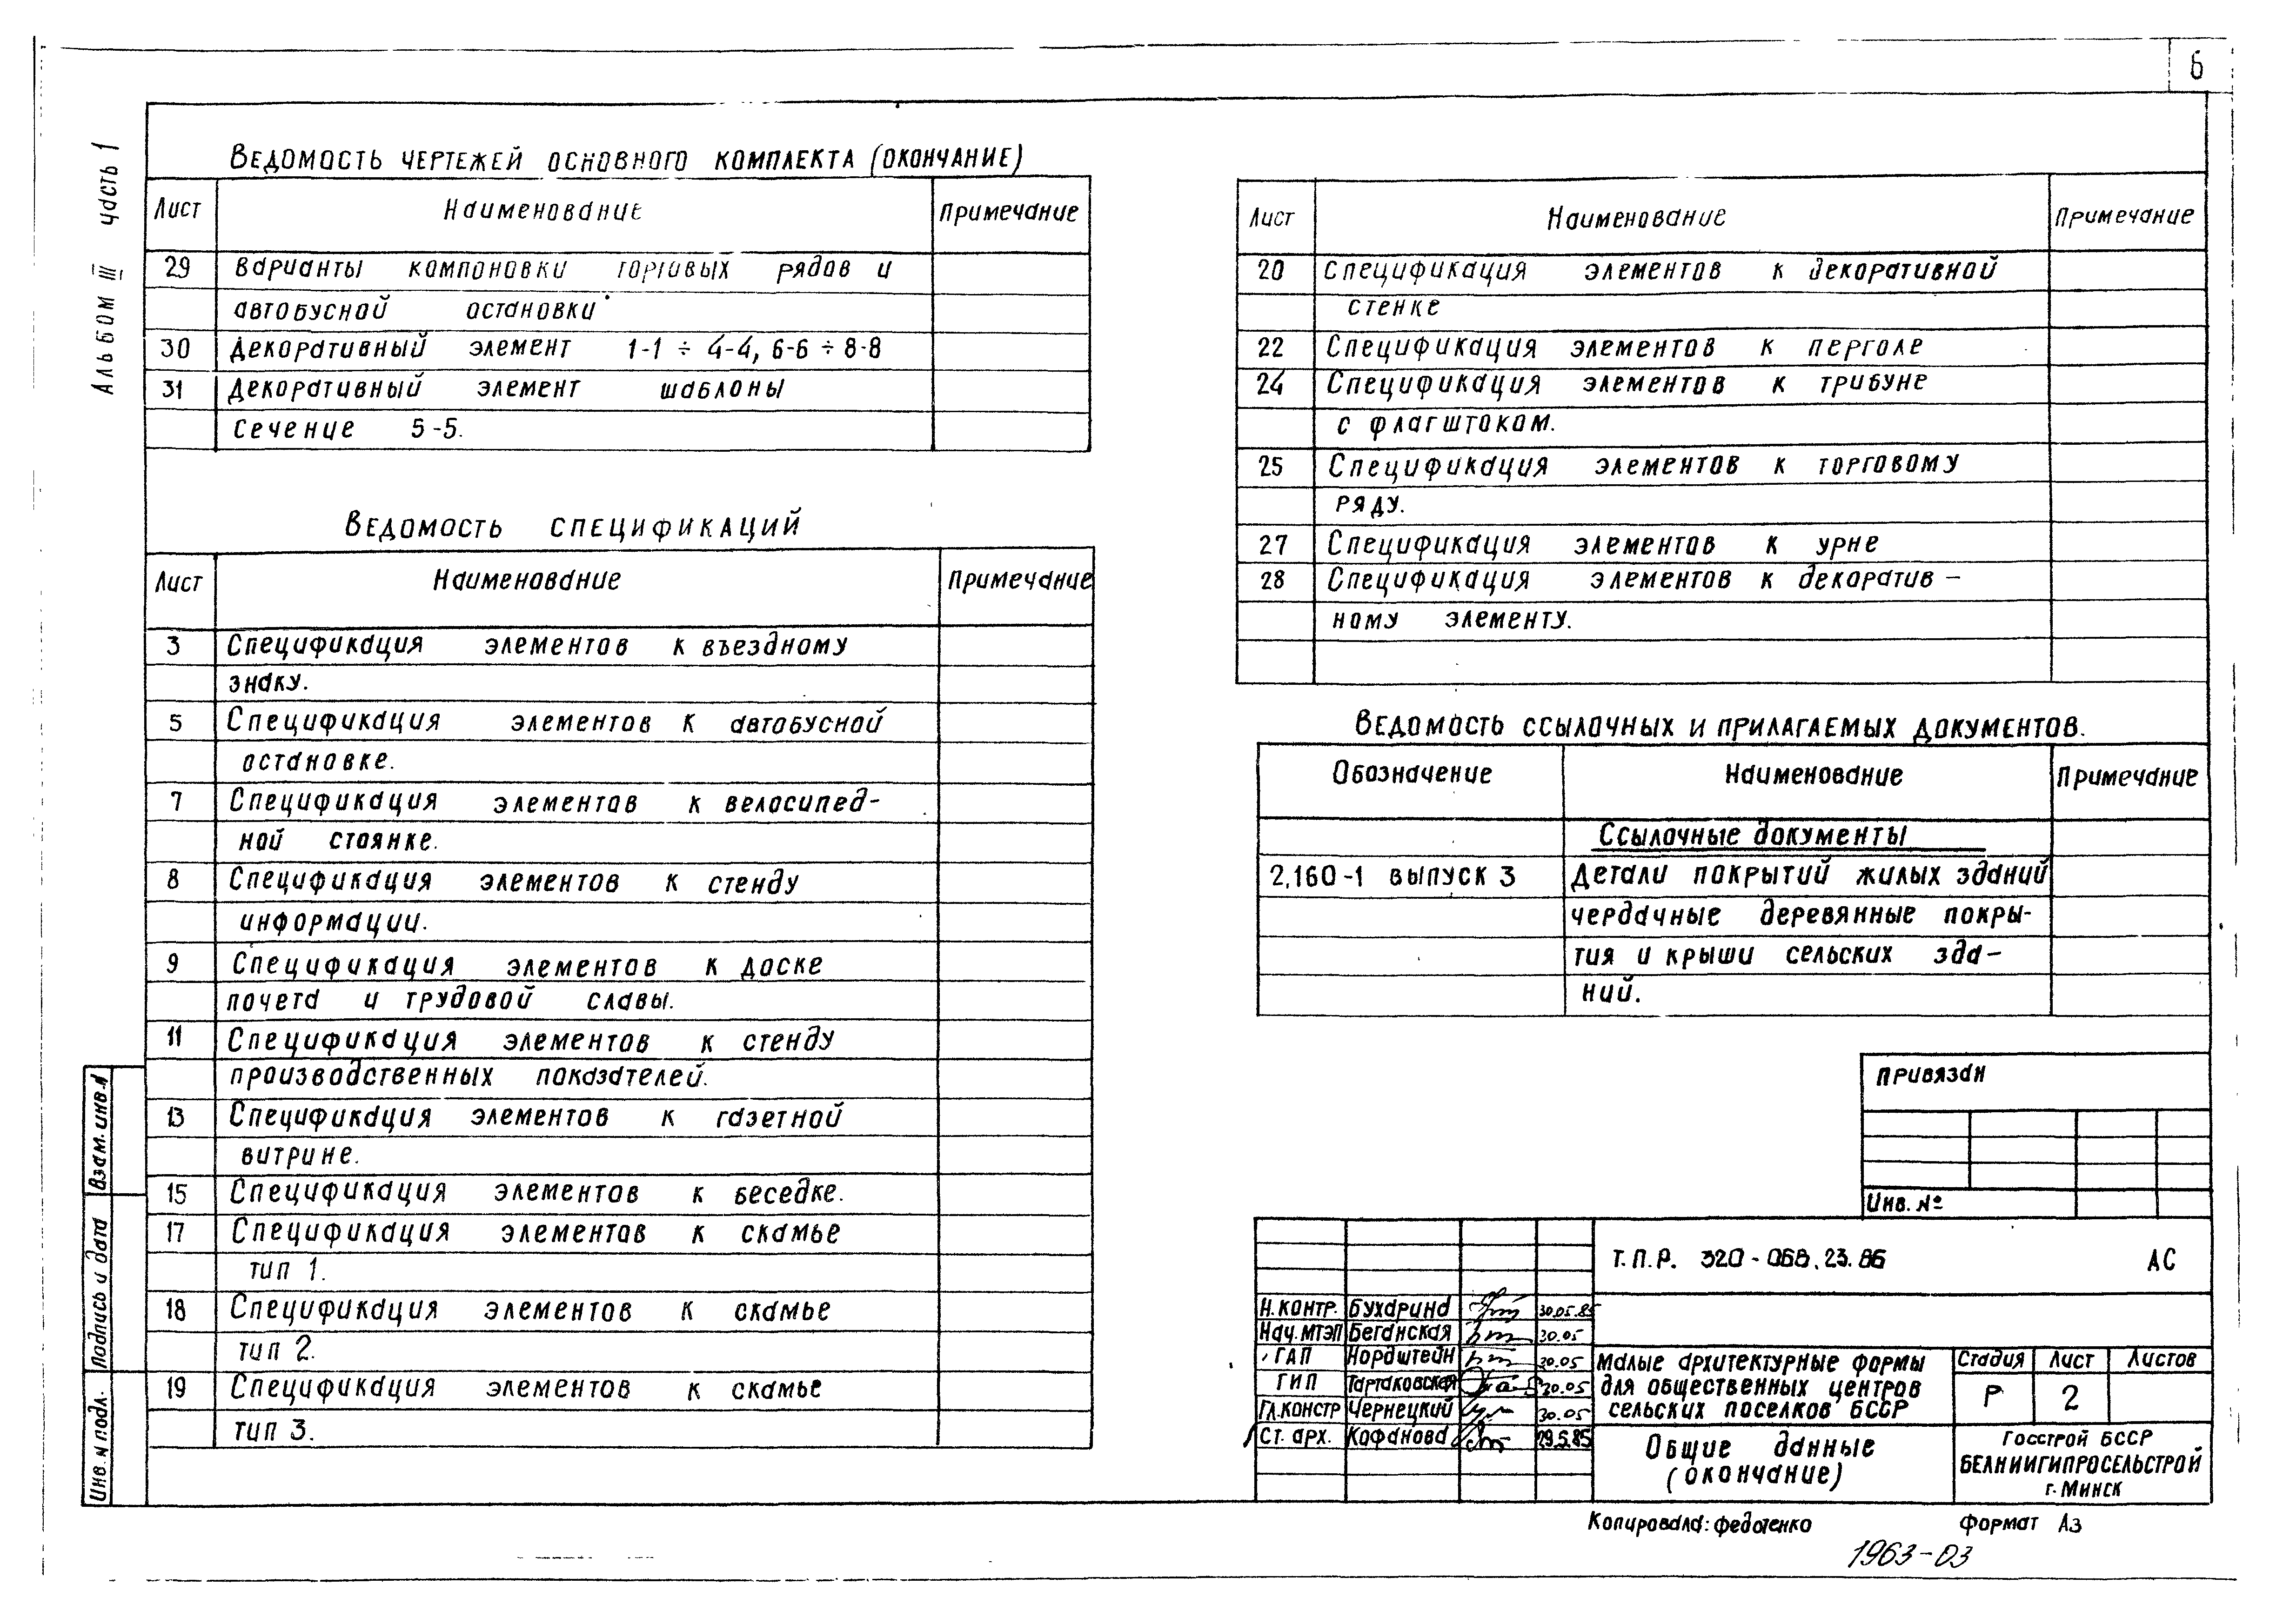 6
Альбом III часть 1
Ведомость чертежей основного комплекта (окончание)
Лист Наименование Примечание
29 Варианты компоновки торговых рядов и
автобусной остановки
30 Декоративный элемент 1-1 ÷ 4-4, 6-6 ÷ 8-8
31 Декоративный элемент шаблоны
Сечение 5-5.
Ведомость спецификаций
Лист Наименование Примечание
3 Спецификация элементов к въездному
знаку.
5 Спецификация элементов к автобусной
остановке.
7 Спецификация элементов к велосипед-
ной стоянке.
8 Спецификация элементов к стенду
информации.
9 Спецификация элементов к доске
почета и трудовой славы.
11 Спецификация элементов к стенду
производственных показателей.
13 Спецификация элементов к газетной
витрине.
15 Спецификация элементов к беседке.
17 Спецификация элементов к скамье
тип 1.
18 Спецификация элементов к скамье
тип 2.
19 Спецификация элементов к скамье
тип 3.
Лист Наименование Примечание
20 Спецификация элементов к декоративной
стенке
22 Спецификация элементов к перголе
24 Спецификация элементов к трибуне
с флагштоком.
25 Спецификация элементов к торговому
ряду.
27 Спецификация элементов к урне
28 Спецификация элементов к декоратив-
ному элементу.
Ведомость ссылочных и прилагаемых документов.
Обозначение Наименование Примечание
Ссылочные документы
2.160-1 выпуск 3 Детали покрытий жилых зданий
чердачные деревянные покры-
тия и крыши сельских зда-
ний.
Привязан
Инв. №
Т.П.Р. 320-068.23.86 АС
Н.контр. Бухарина 30.05.85
Нач.МТЭП Беганская 30.05
ГАП Нордштейн 30.05
ГИП Тартаковская 30.05
Гл.констр Чернецкий 30.05
Ст. арх. Кафанова 29.5.85
Малые архитектурные формы
для общественных центров
сельских поселков БССР
Стадия Лист Листов
Р 2
Общие данные
(окончание)
Госстрой БССР
БЕЛНИИГИПРОСЕЛЬСТРОЙ
г. Минск
Взам. инв.№
Подпись и дата
Инв. № подл.
Копировала: Федотенко Формат А3
1963-03